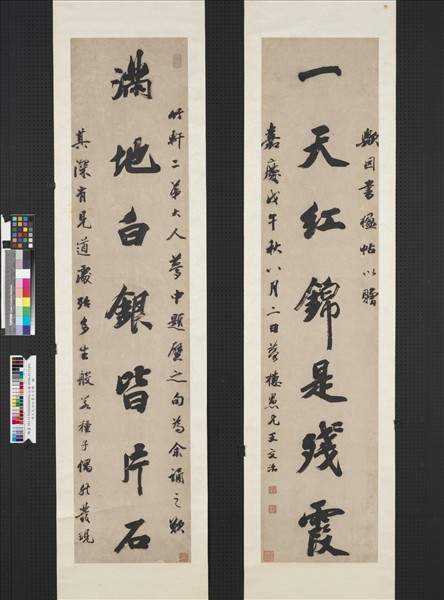 竹軒二弟大人夢中題壁之句為余誦之歎
滿地白銀皆片石
其深有見道處殆多生般若種子偶然發現
歟因書楹帖以贈
一天紅錦是殘霞
嘉慶戊午秋八月二日夢樓愚兄王文治